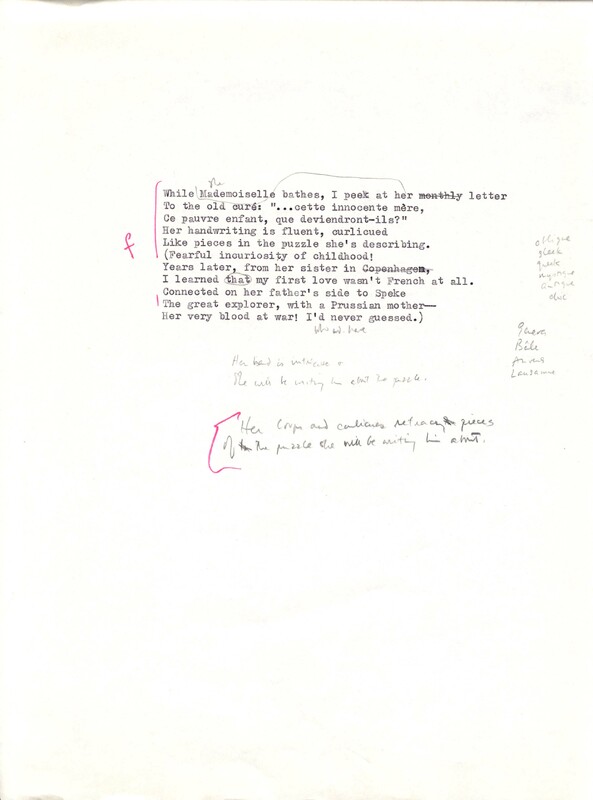 she
While Mademoiselle bathes, I peek at her monthly letter
To the old curé: "...cette innocente mère,
Ce pauvre enfant, que deviendront-ils?"
Her handwriting is fluent, curlicued
Like pieces in the puzzle she's describing.
(Fearful incuriosity of childhood!
Years later, from her sister in Copenhagen,
I learned that my first love wasn't French at all.
Connected on her father's side to Speke
The great explorer, with a Prussian mother—
Her very blood at war! I'd never guessed.)
who wd. have
f
oblique
sleek
antique
Geneva
Bâle
Lausanne
Her hand is intricate &
She will be writing him about the puzzle.
Her loops and curlicues retrace pieces
Of the puzzle she will be writing him about.